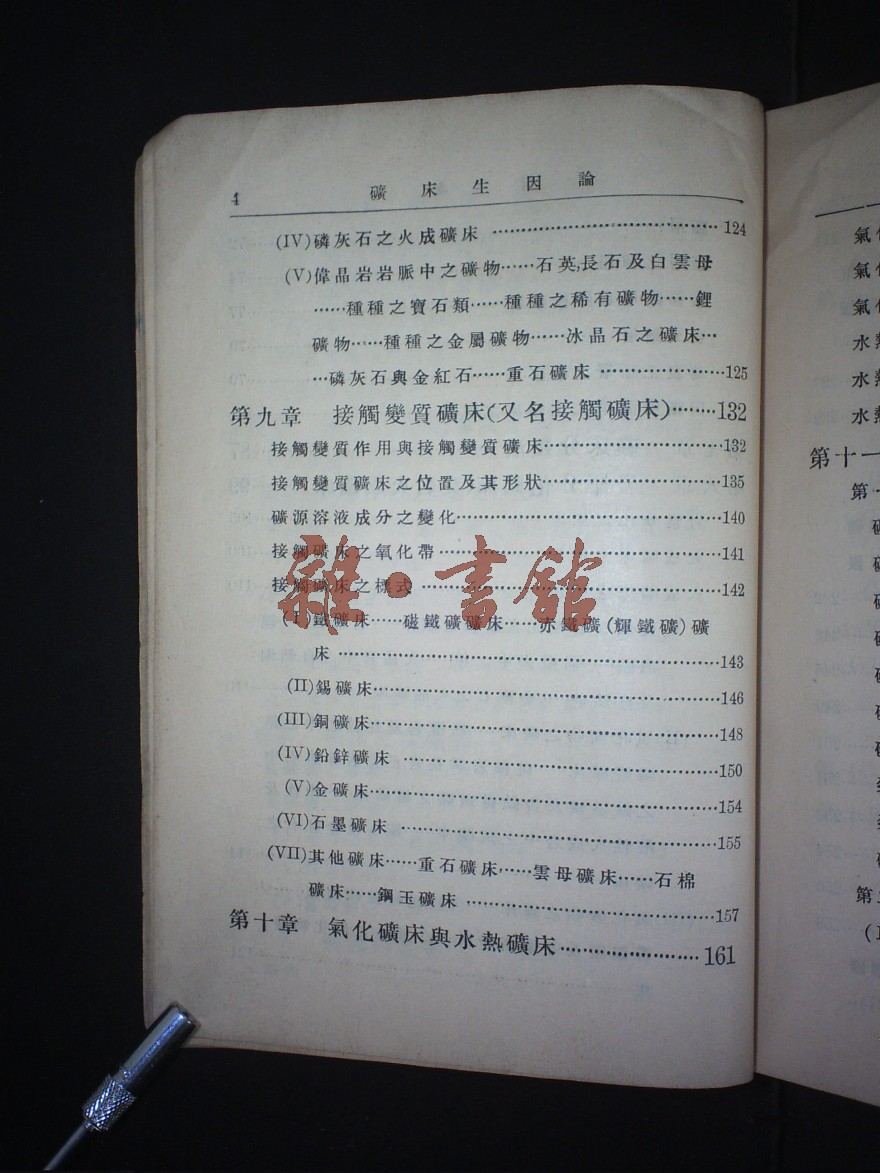 4 礦床生因論
(IV)磷灰石之火成礦床 ……………………………124
(V)偉晶岩岩脈中之礦物……石英,長石及白雲母
……種種之寶石類……種種之稀有礦物……鋰
礦物……種種之金屬礦物……冰晶石之礦床…
…磷灰石與金紅石……重石礦床 …………………125
第九章 接觸變質礦床(又名接觸礦床)………132
接觸變質作用與接觸變質礦床………………………132
接觸變質礦床之位置及其形狀………………………135
礦源溶液成分之變化…………………………………140
接觸礦床之氧化帶……………………………………141
接觸礦床之標式 ……………………………………142
(I)鐵礦床……磁鐵礦礦床……赤鐵礦(輝鐵礦)礦
床 ……………………………………………………143
(II)錫礦床……………………………………………146
(III)銅礦床……………………………………………148
(IV)鉛鋅礦床 ………………………………………150
(V)金礦床……………………………………………154
(VI)石墨礦床 ………………………………………155
(VII)其他礦床……重石礦床……雲母礦床……石棉
礦床……鋼玉礦床 …………………………………157
第十章 氣化礦床與水熱礦床…………………161
雜·書館
氣化
氣
氣化
水
水熱
水熱
第十一
第